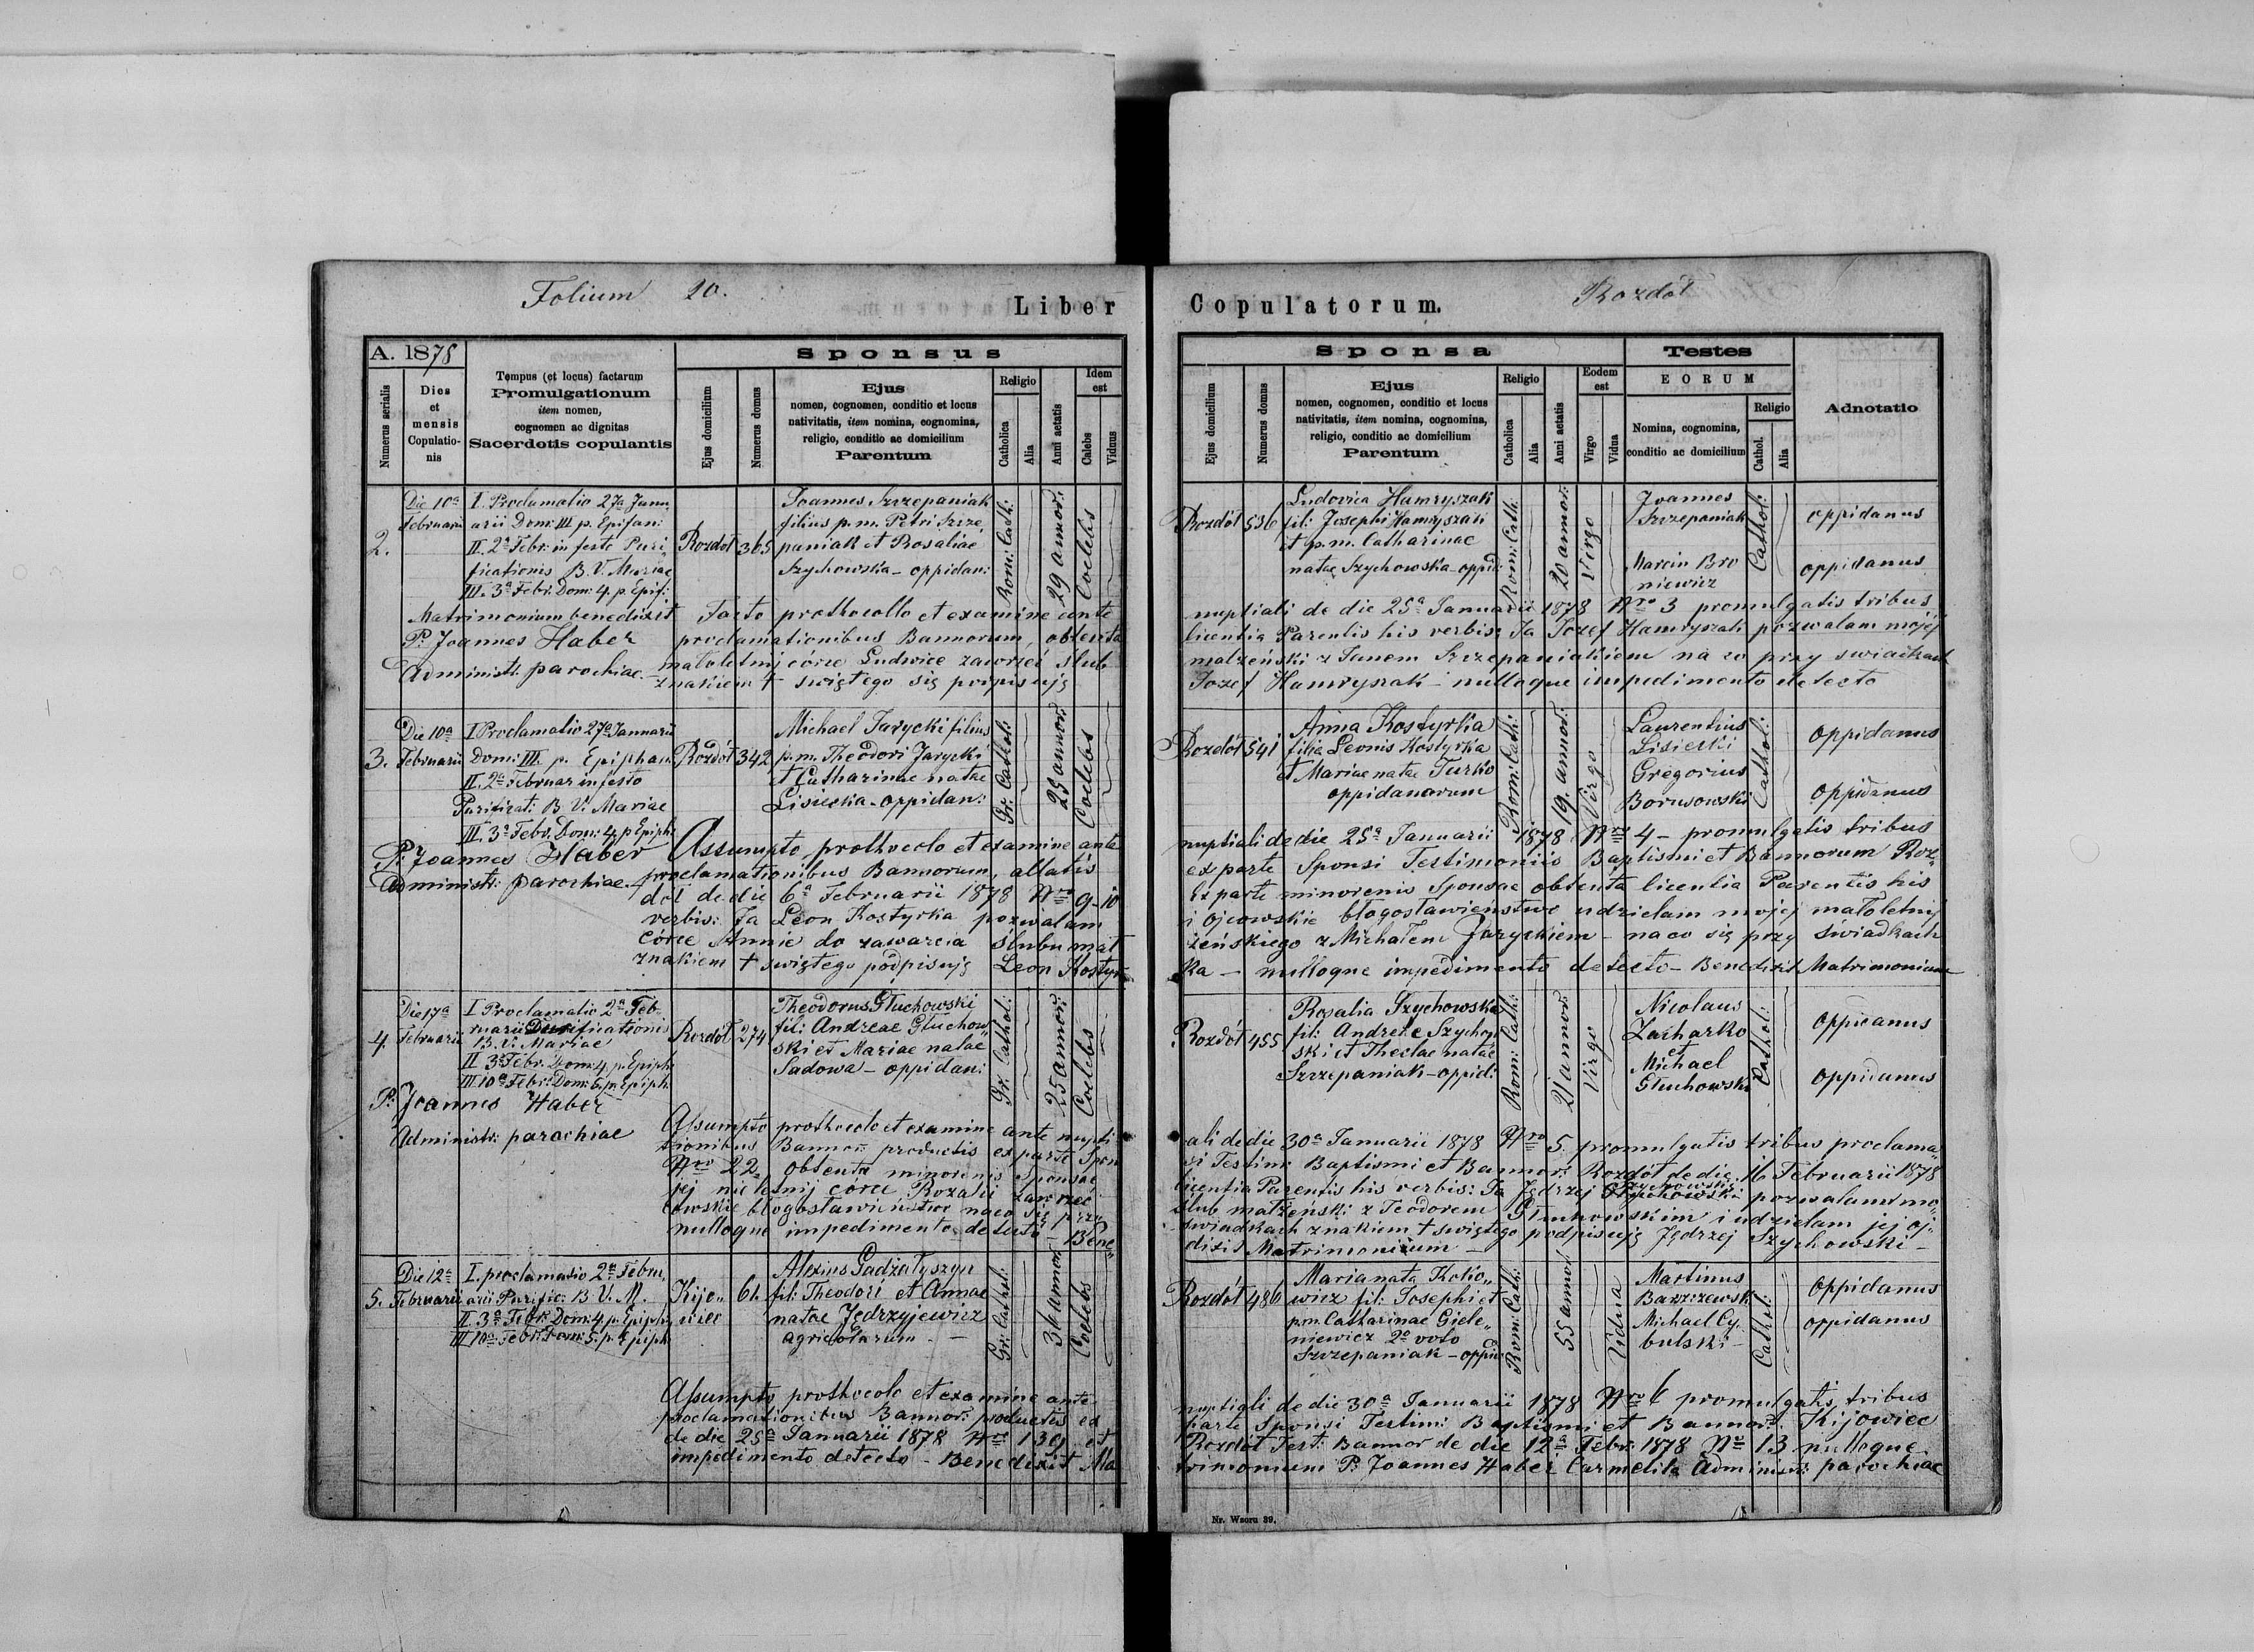 Folium 20.
Liber
A. 1878
Sponsus
Numerus serialis
Dies et mensis Copulatio-nis
Tempus (et locus) factarum
Promulgationum
item nomen,
cognomen ac dignitas
Sacerdotis copulantis
Ejus domicilium
Numerus domus
Ejus
nomen, cognomen, conditio et locus
nativitatis, item nomina, cognomina,
religio, conditio ac domicilium
Parentum
Religio
Catholica
Alia
Anni aetatis
Idem est
Calebs
Viduus
2.
Die 10a
Februarii
I. Proclamatio 27a Janu
arii Dom: III p. Epifan:
II. 2a Febr: in festo Puri
ficationis B. V. Mariae
III. 3a Febr: Dom: 4. p. Epif:
Rozdół
365
Joannes Szczepaniak
filius p. m. Petri Szcze
paniak et Rosaliae
Szychowska - oppidan:
Rom: Cath:
29 annor:
Coelebs
Matrimonium benedixit
P. Joannes Haber
Administr. parochiae
Facto prothocollo et examine ante
proclamationibus Bannorum, obtenta
małoletnij córce Ludwice zawrzeć ślub
znakiem + swiętego się podpisuję
3.
Die 10a
Februarii
I Proclamatio 27a Januarii
Dom: III. p. Epiphan:
II. 2a Februar in festo
Purificat: B. V. Mariae
III. 3a Febr. Dom: 4. p Epiph:
Rozdół
342
Michael Jarycki filius
p. m. Theodori Jarycki
et Catharinae natae
Lisiecka - oppidan:
Gr: Cathol:
25 annor:
Coelebs
P. Joannes Haber
Administr: parochiae
Assumpto prothocolo et examine ante
proclamationibus Bannorum, allatis
dół de die 6a Februarii 1878 Nro 9-10
verbis: Ja Leon Kostyrka pozwalam
córce Annie do zawarcia ślubu mał
znakiem + swiętego podpisuję Leon Kostyr
4.
Die 17a
Februarii
I Proclamatio 2a Feb
ruarii Purificationis
B. V. Mariae
II 3a Febr. Dom: 4 p. Epiph:
III 10a Febr: Dom: 5. p. Epiph.
Rozdół
274
Theodorus Głuchowski
fil: Andreae Głuchow
ski et Mariae natae
Sadowa - oppidan:
Gr: Cathol:
25 annor:
Coelebs
P. Joannes Haber
Administr: parochiae
Assumpto prothocolo et examine ante nupti
tionibus Bannor: productis ex parte Spon
Nro 22 obtenta minorenis Sponsae
jej nieletnij córce Rozalii zawrzeć
cowskie błogosławieństwo naco się przy
nulloque impedimento detecto - Bene
5.
Die 12a
Februarii
I. proclamatio 2a Febru
arii Purific: B. V. M.
II. 3a Febr: Dom: 4. p. Epiph.
III 10a Febr: Dom: 5. p. Epiph
Kijo
wiec
61.
Alexius Gadzałyszyn
fil: Theodori et Annae
natae Jędrzyjewicz
agricolarum -
Gr: Cathol:
36 annor:
Coelebs
Assumpto prothocolo et examine ante
proclamationibus Bannor: productis ex
de die 25a Januarii 1878 Nro 139 et
impedimento detecto - Benedixit Ma
Copulatorum.
Rozdół
Sponsa
Testes
Adnotatio
Ejus domicilium
Numerus domus
Ejus
nomen, cognomen, conditio et locus
nativitatis, item nomina, cognomina,
religio, conditio ac domicilium
Parentum
Religio
Catholica
Alia
Anni aetatis
Eodem est
Virgo
Vidua
EORUM
Nomina, cognomina,
conditio ac domicilium
Religio
Cathol.
Alia
Rozdół
536
Ludovica Hamryszak
fil: Josephi Hamryszak
et p. m. Catharinae
natae Szychowska - oppid:
Rom: Cath:
20 annor:
Virgo
Joannes
Szczepaniak
Marcin Bro
niewicz
Cathol:
oppidanus
oppidanus
nuptiali de die 25a Januarii 1878 Nro 3 promulgatis tribus
licentia Parentis his verbis: Ja Józef Hamryszak pozwalam mojej
małżeński z Janem Szczepaniakiem na co przy swiadkach
Jozef Hamryszak - nulloque impedimento detecto
Rozdół
541
Anna Kostyrka
filia Leonis Kostyrka
et Mariae natae Turko
oppidanorum
Rom: Cath:
19. annor:
Virgo
Laurentius
Lisiecki
Gregorius
Borusowski
Cathol:
oppidanus
oppidanus
nuptiali de die 25a Januarii 1878 Nro 4 - promulgatis tribus
ex parte Sponsi Testimoniis Baptismi et Bannorum Roz
Ex parte minorenis Sponsae obtenta licentia Parentis his
i ojcowskie błogosławieństwo udzielam mojej małoletnij
żeńskiego z Michałem Jaryckiem - naco się przy świadkach
ka - nulloque impedimento detecto - Benedixit Matrimonium
Rozdół
455
Rosalia Szychowska
fil: Andreae Szychow
ski et Theclae natae
Szczepaniak - oppid:
Rom: Cath:
21 annor:
Virgo
Nicolaus
Zacharko
et
Michael
Głuchowski
Cathol:
oppidanus
oppidanus
ali de die 30a Januarii 1878 Nro 5. promulgatis tribus proclama
si Testim: Baptismi et Bannor: Rozdół de die 16 Februarii 1878
licentia Parentis his verbis: Ja Jędrzej Szychowski pozwalam mo
ślub małżeński z Teodorem Głuchowskim i udzielam jej oj
świadkach znakiem + swiętego podpisuję Jędrzej Szychowski -
dixit Matrimonium -
Rozdół
486
Maria nata Koko
wicz fil: Josephi et
p.m. Catharinae Giele
niewicz 2o voto
Szczepaniak - oppid:
Rom: Cath:
55 annor:
Vidua
Martinus
Barszczewski
Michael Cy
bulski -
Cathol:
oppidanus
oppidanus
nuptiali de die 30a Januarii 1878 Nro 6 promulgatis tribus
parte Sponsi Testim: Baptismi et Bannor: Kijowiec
Rozdół Test: Bannor de die 12a Febr: 1878 Nro 13 nulloque
trimonium P. Joannes Haber Carmelita Administr: parochiae
Nr. Wzoru 39.